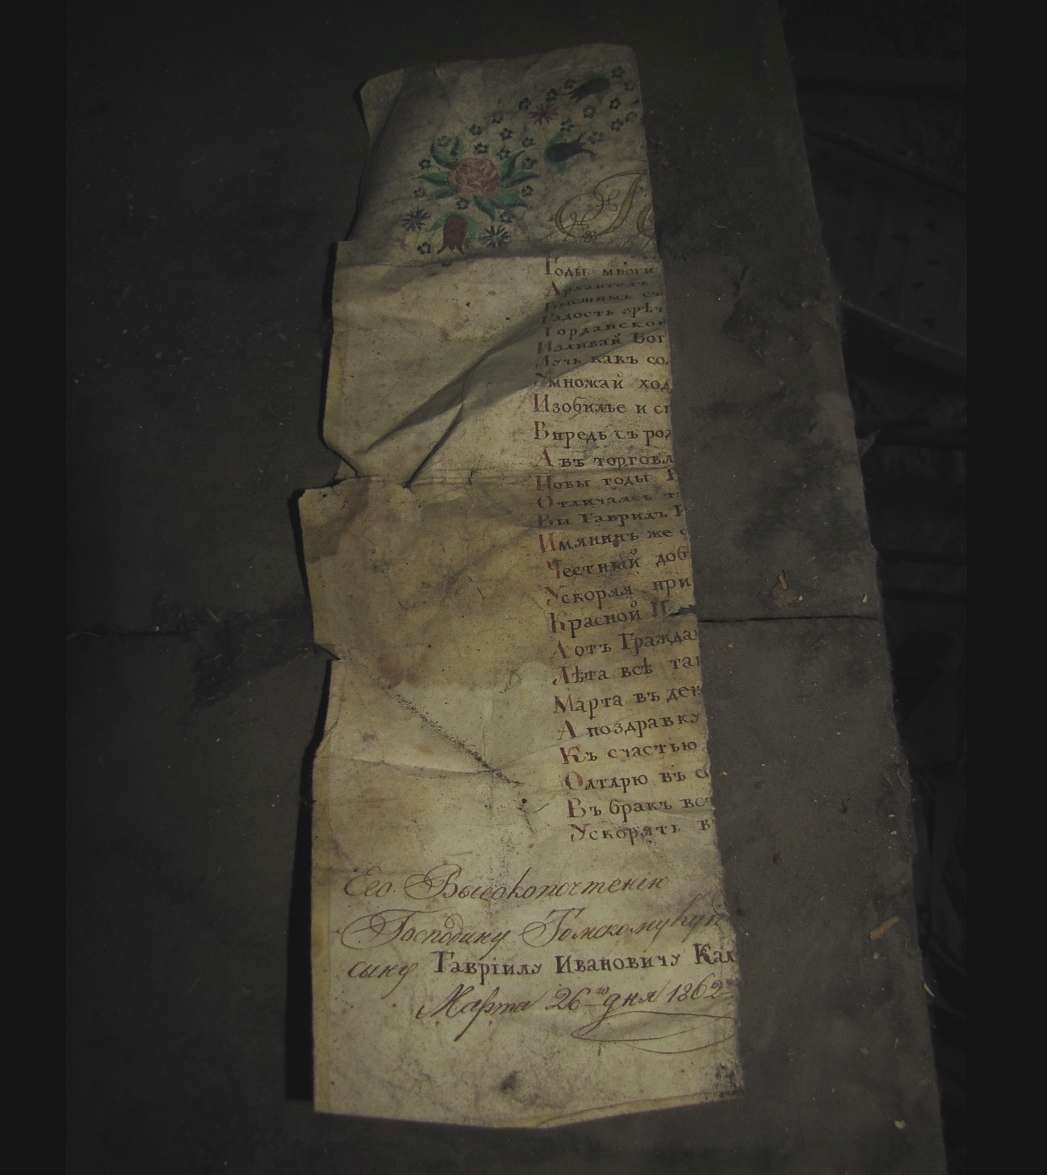 Годы многи
Архангелъ
Радость срѣт
Іорданской
Изливай Бог
Лучь какъ со
Умножай ход
Изобилье и сп
Впредь съ роз
А въ торговл
Новы годы
Отличаясь т
Вы Гавриіъ
Имянинъ же с
Честный доб
Ускоряя при
Красной П
А отъ Гражда
Лѣта всѣ так
Марта въ ден
А поздравку
Къ счастью
Олтарю въ с
Въ бракъ вс
Ускорять в
Его Высокопочтенію
Господину Томскому куп
сыну Гавріилу Ивановичу Кал
Марта 26го дня 1862го